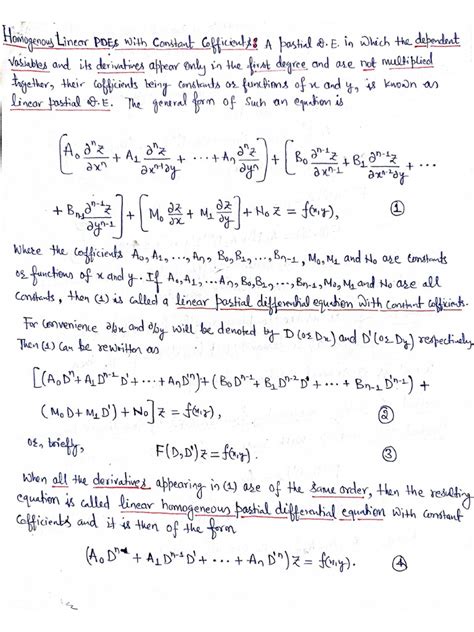 Homogenous Linear PDEs with Constant Cofficients: A partial D.E. in which the dependent
variables and its derivatives appear only in the first degree and are not multiplied
together, their cofficients being constants or functions of x and y, is known as
linear partial D.E. The general form of such an equation is
[A₀ ∂ⁿz/∂xⁿ + A₁ ∂ⁿz/∂xⁿ⁻¹∂y + ... + Aₙ ∂ⁿz/∂yⁿ] + [B₀ ∂ⁿ⁻¹z/∂xⁿ⁻¹ + B₁ ∂ⁿ⁻¹z/∂xⁿ⁻²∂y + ...
+ Bₙ₋₁ ∂ⁿ⁻¹z/∂yⁿ⁻¹] + [M₀ ∂z/∂x + M₁ ∂z/∂y] + N₀ z = f(x,y), ①
Where the cofficients A₀, A₁, ..., Aₙ, B₀, B₁, ..., Bₙ₋₁, M₀, M₁ and N₀ are constants
or functions of x and y. If A₀, A₁, ... Aₙ, B₀, B₁, ..., Bₙ₋₁, M₀, M₁ and N₀ are all
constants, then (1) is called a linear partial differential equation with constant cofficients.
For convenience ∂/∂x and ∂/∂y will be denoted by D (or Dx) and D' (or Dy) respectively
Then (1) can be rewritten as
[(A₀Dⁿ + A₁Dⁿ⁻¹D' + ... + AₙD'ⁿ) + (B₀Dⁿ⁻¹ + B₁Dⁿ⁻²D' + ... + Bₙ₋₁D'ⁿ⁻¹) +
(M₀D + M₁D') + N₀] z = f(x,y), ②
or, briefly,
F(D, D') z = f(x,y). ③
When all the derivatives appearing in (1) are of the same order, then the resulting
equation is called linear homogeneous partial differential equation with constant
Cofficients and it is then of the form
(A₀Dⁿ + A₁Dⁿ⁻¹D' + ... + AₙD'ⁿ) z = f(x,y). ④